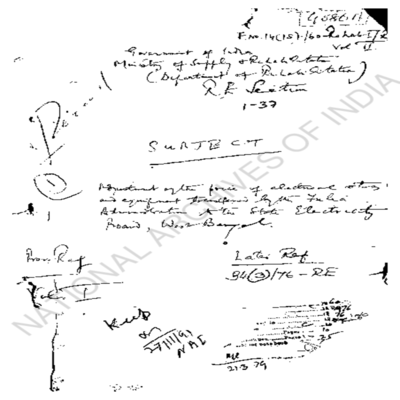 F. No. 14(15)/60-Rehab-I/2
Vol II
Government of India
Ministry of Supply & Rehabilitation
(Department of Rehabilitation)
R.E Section
1-37
SUBJECT
Adjustment of the price of electrical stores
and equipment transferred by the Fulia
Administration to the State Electricity
Board, West Bengal.
Prev. Ref
Later Ref
Vol. I
94(3)/76-RE
27/11/91
NAI
21.3.79
NATIONAL ARCHIVES OF INDIA